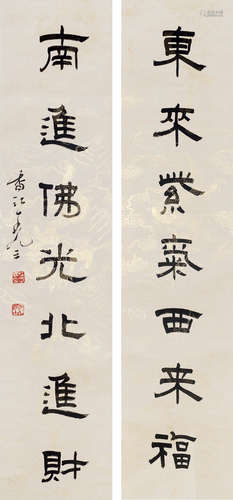 東來紫氣西来福
南進佛光北進財